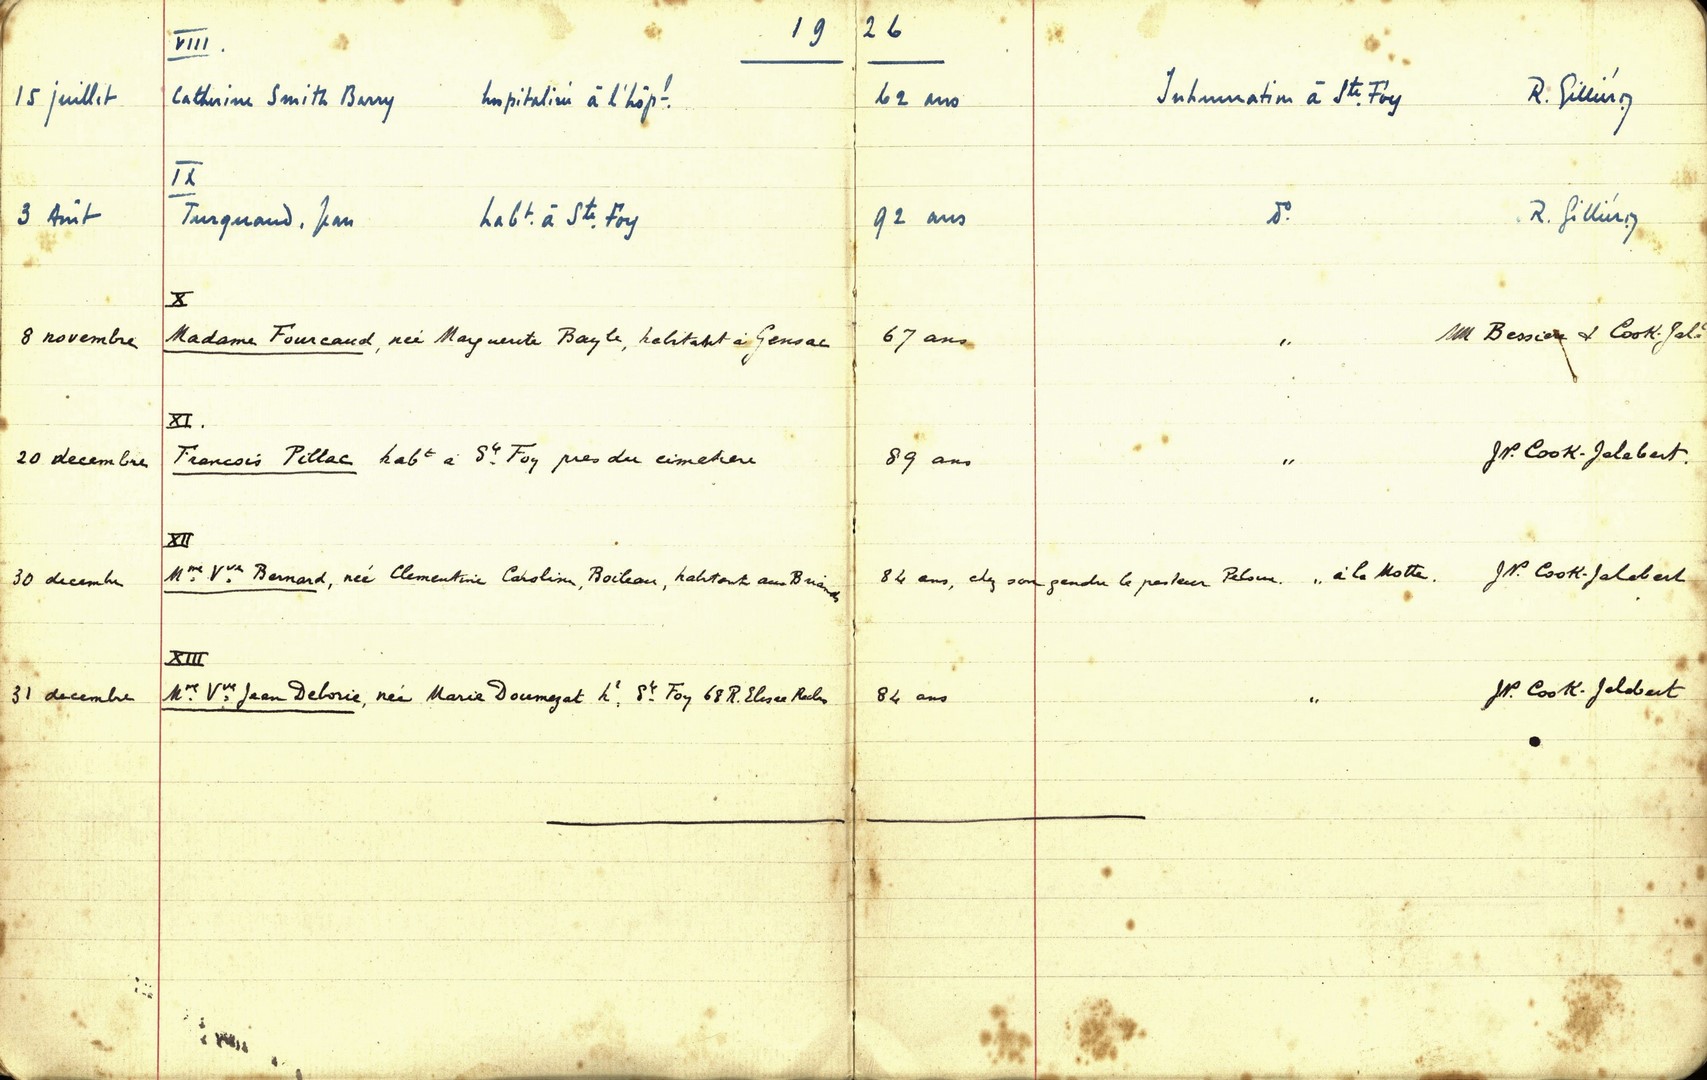 1926
VIII.
15 juillet Catherine Smith Barry hospitalisée à l'hôp^l. 62 ans Inhumation à Ste. Foy R. Gilliéron
IX
3 Août Turquand, Jean hab^t. à Ste. Foy 92 ans d° R. Gilliéron
X
8 novembre Madame Fourcaud, née Marguerite Bayle, habitant à Gensac 67 ans " MM Bessière & Cook-Jal^t
XI.
20 decembre Francois Pillac hab^t à S^te Foy pres du cimetiere 89 ans " JP. Cook-Jalabert.
XII
30 decembre M^me V^ve Bernard, neé Clementine Caroline, Boileau, habitante aux Briands 84 ans, chez son gendre le pasteur " à la Motte. JP. Cook-Jalabert
XIII
31 decembre M^me V^ve Jean Delorie, neé Marie Doumezat h^t. S^te Foy 68 R. Elisee Reclus 84 ans " JP. Cook-Jalabert